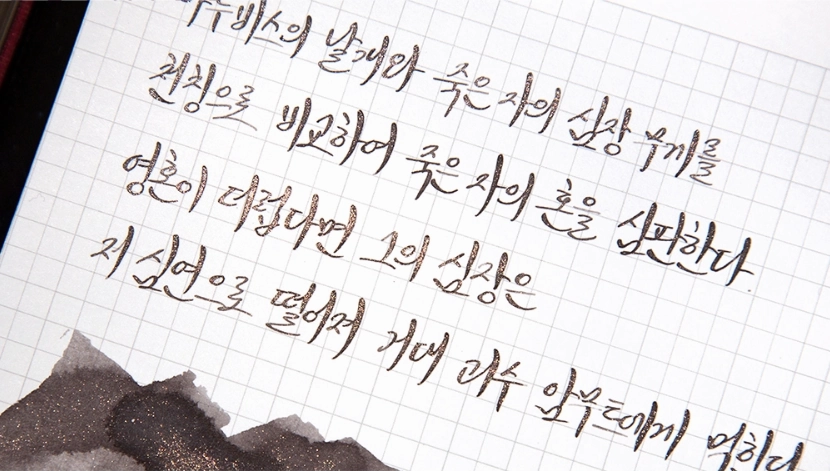 아누비스의 날개와 죽은 자의 심장 무게를
천칭으로 비교하여 죽은 자의 혼을 심판한다.
영혼이 더럽다면 그의 심장은
저 심연으로 떨어져 거대 괴수 암무트에게 먹히다